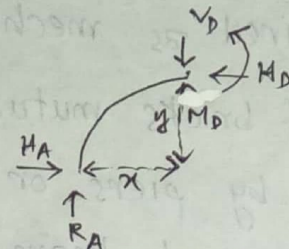 V_D
H_D
y M_D
H_A
x
R_A